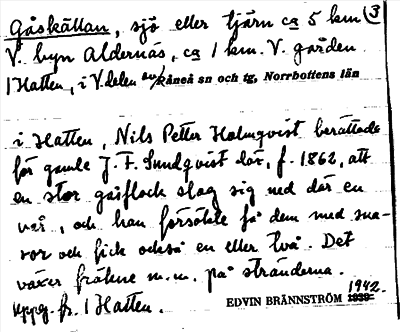 Gåskällan, sjö eller tjärn ca 5 km (3
V. byn Aldernäs, ca 1 km. V. gården
1 Hatten, i V. delen av Råneå sn och tg, Norrbottens län
i Hatten, Nils Petter Holmqvist berättade
för gamle J. F. Sundqvist där, f. 1862, att
en stor gåsflock slog sig ned där en
vår, och han försökte få dem med sna-
ror och fick också en eller två. Det
växer fräkne m.m. på stränderna.
Uppg. fr. 1 Hatten.
EDVIN BRÄNNSTRÖM 1939 1942.